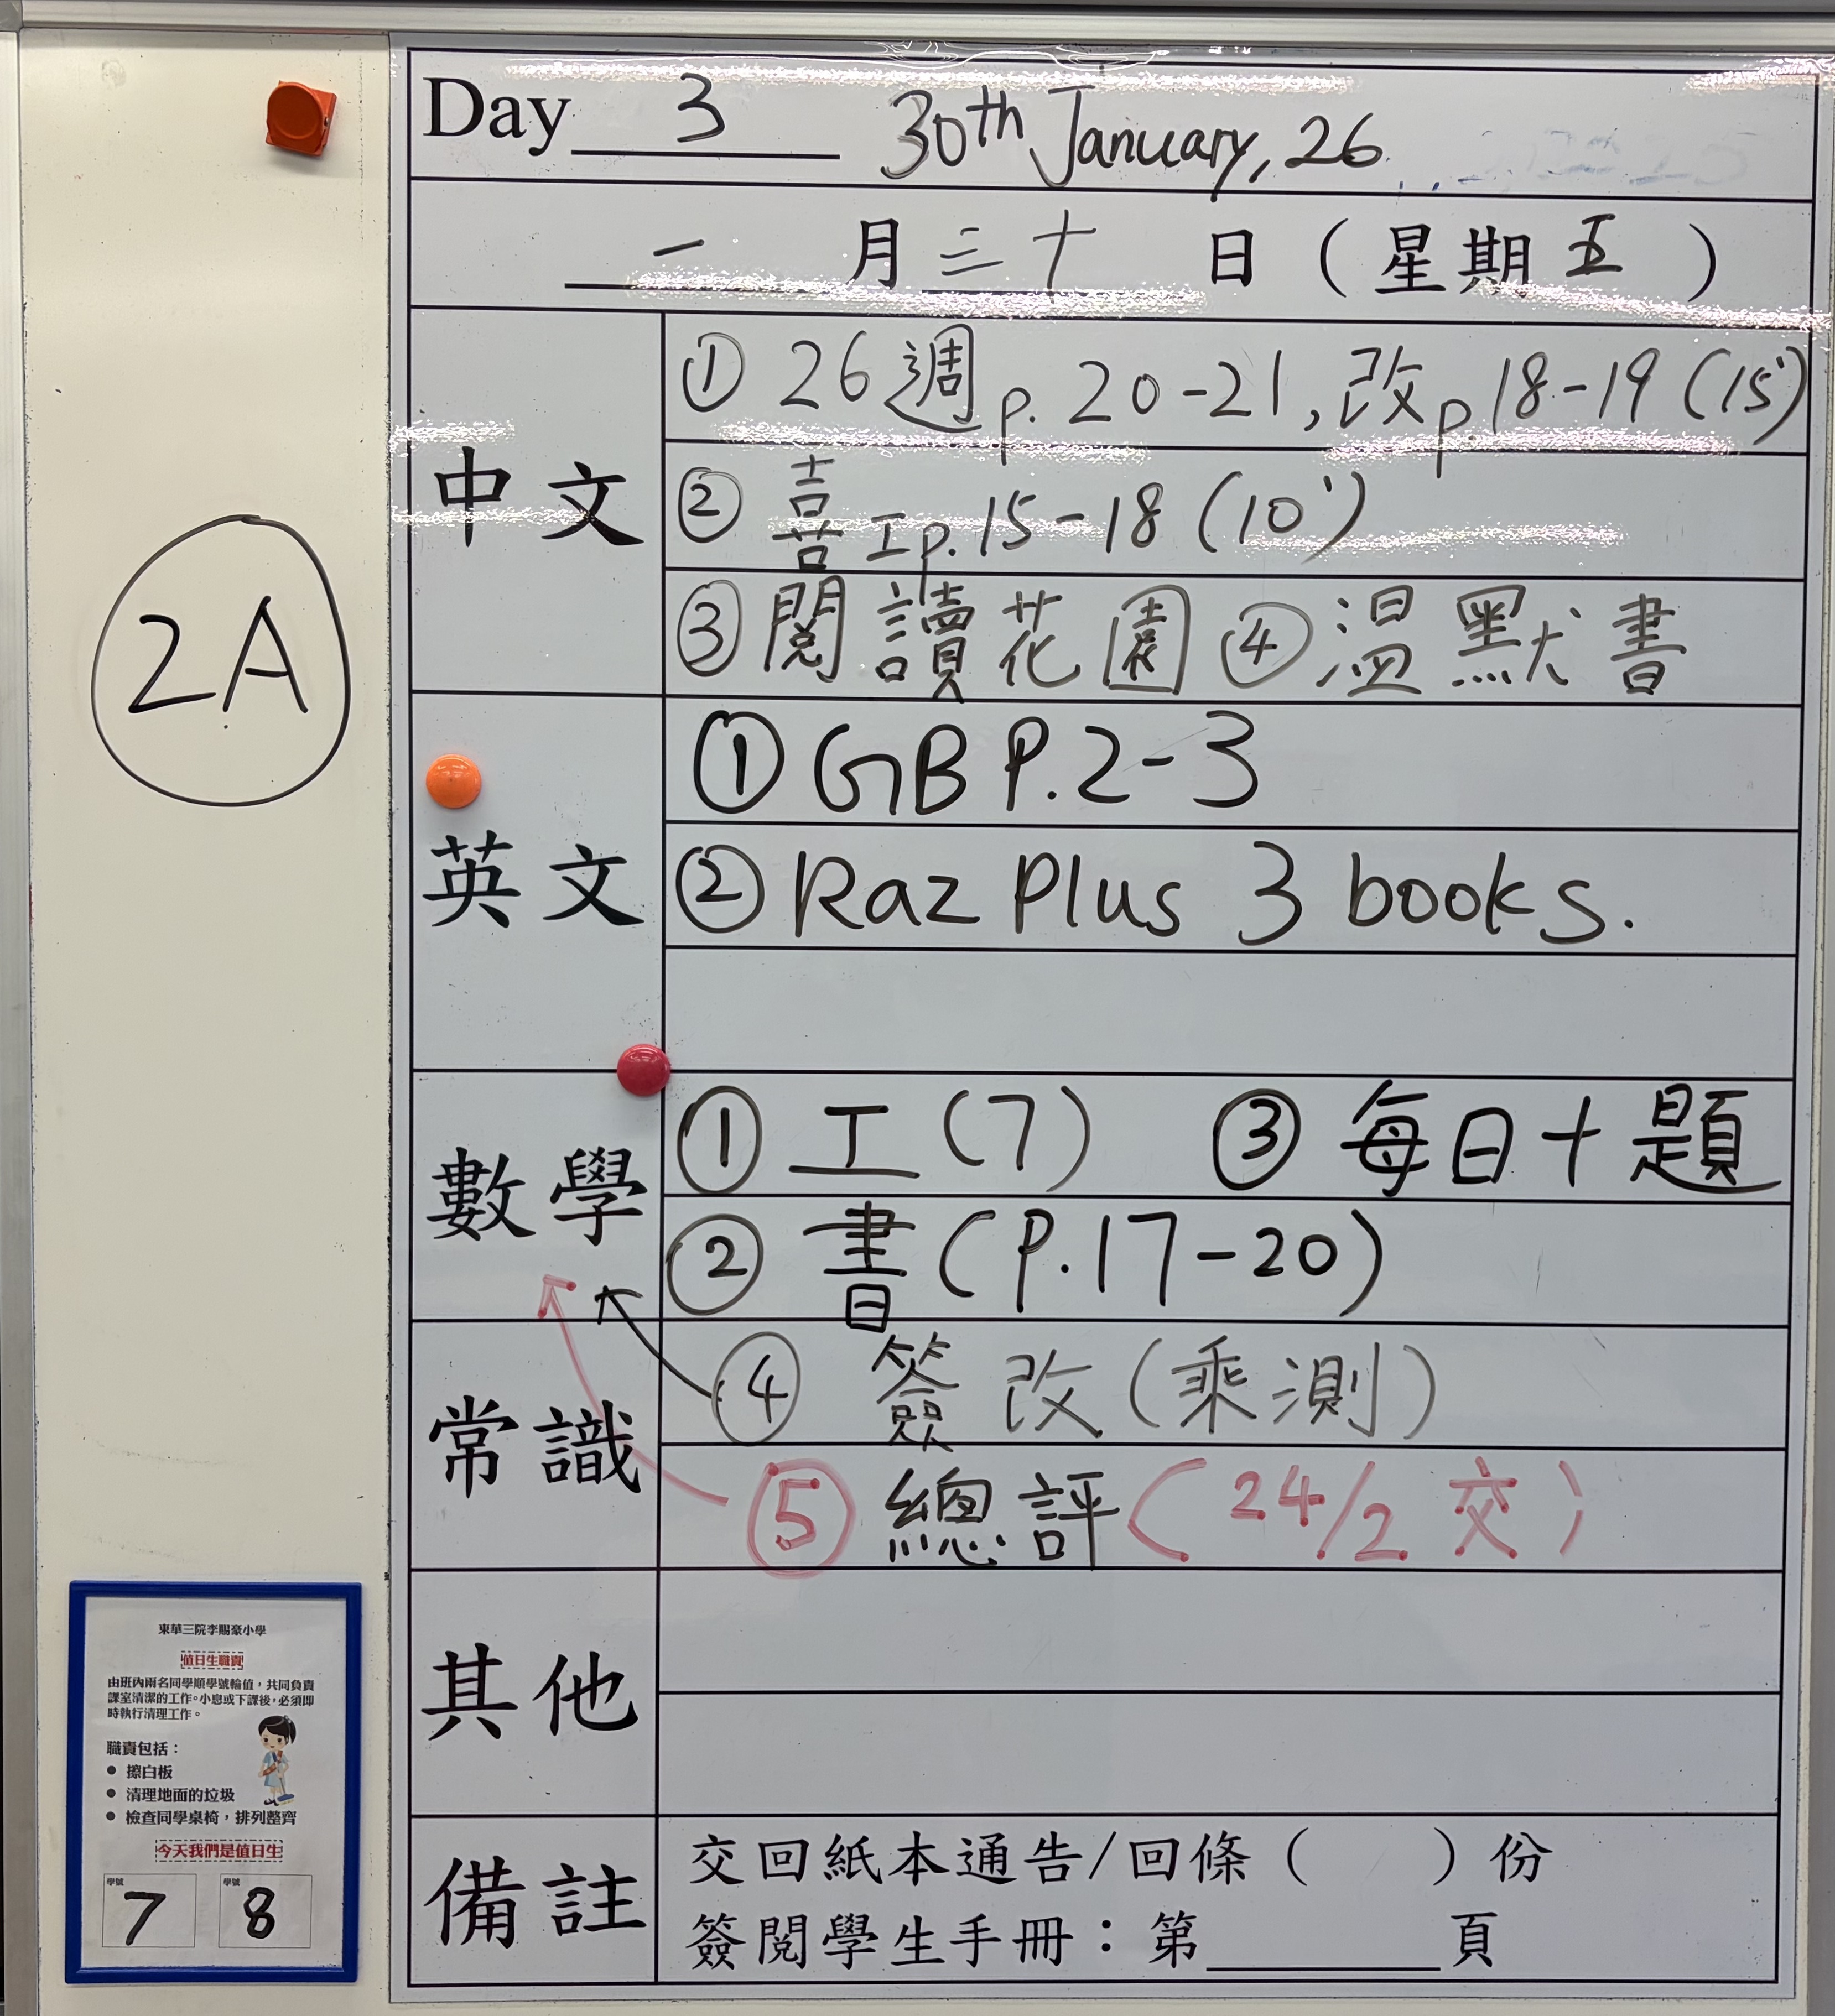 Day 3 30th January, 26.
一 月 三十 日 ( 星期 五 )
中文
① 26週 p. 20-21, 改 p. 18-19 (15')
② 喜 工 p. 15-18 (10')
③ 閱讀花園 ④ 温默書
2A
英文
① GB P.2-3
② Raz Plus 3 books.
數學
① 工 (7) ③ 每日十題
② 書 (P.17-20)
常識
④ 簽改 (乘測)
⑤ 總評 (24/2 交)
其他
備註
交回紙本通告/回條 ( ) 份
簽閱學生手冊：第 頁
東華三院李賜豪小學
值日生職責
由班內兩名同學順學號輪值，共同負責
課室清潔的工作。小息或下課後，必須即
時執行清理工作。
職責包括：
● 擦白板
● 清理地面的垃圾
● 檢查同學桌椅，排列整齊
今天我們是值日生
學號 7 學號 8